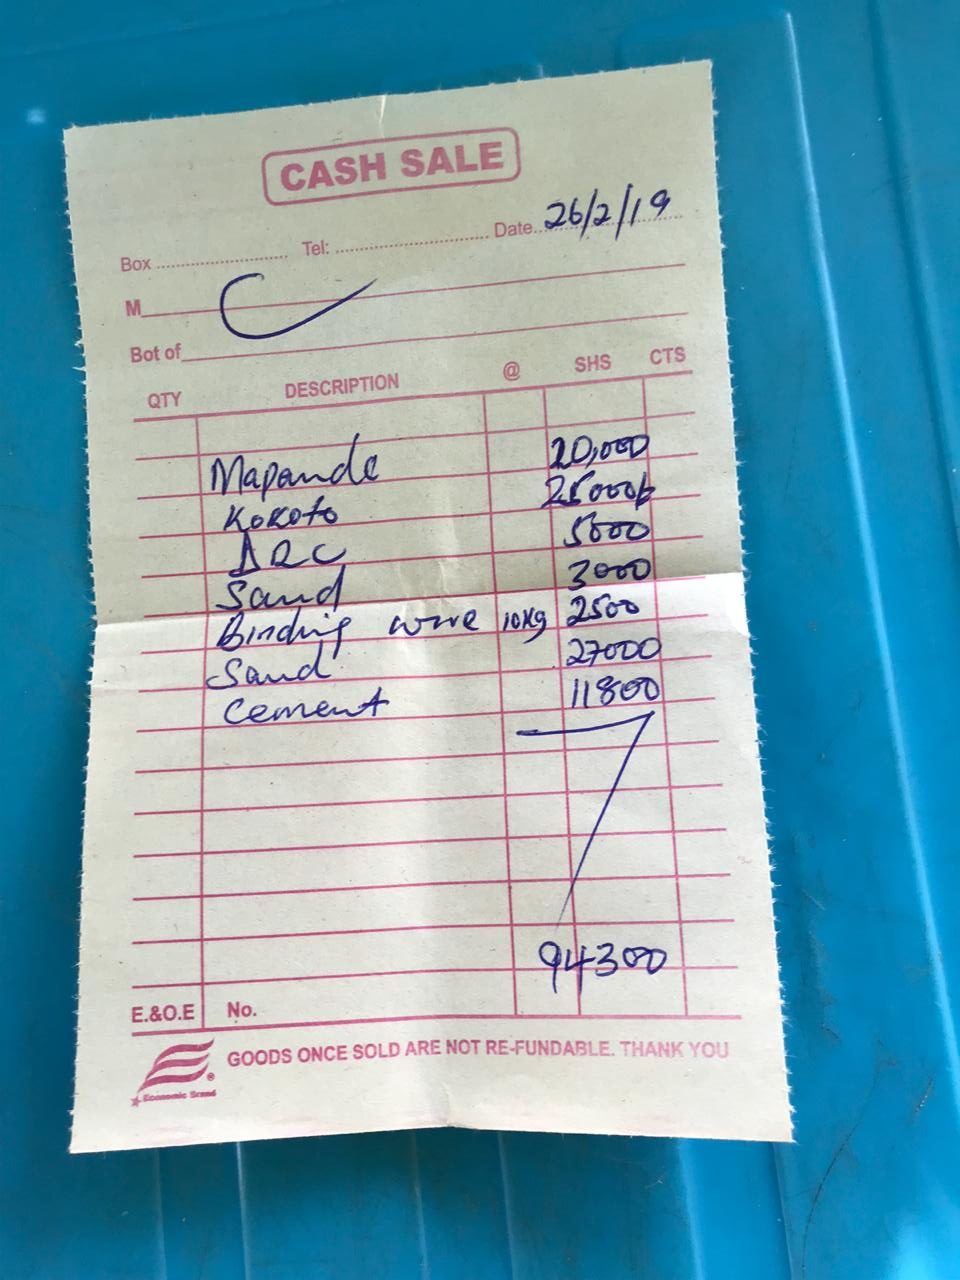 CASH SALE
Box Tel: Date 26/2/19
M
Bot of
QTY DESCRIPTION @ SHS CTS
Mapande 20,000
Kokoto 25000
5000
Sand 3000
Binding wire 10kg 2500
Sand 27000
Cement 11800
94300
E.&O.E No.
GOODS ONCE SOLD ARE NOT RE-FUNDABLE. THANK YOU
Economic Brand